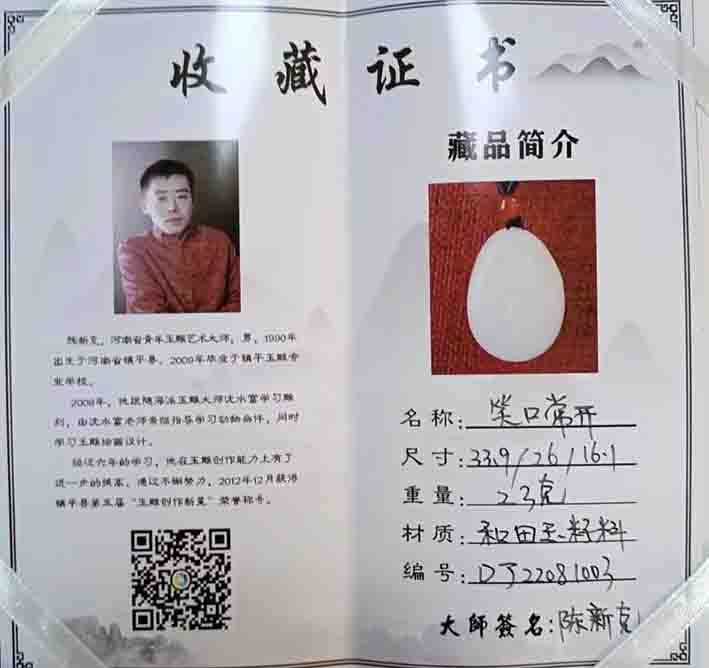 收藏证书
陈新克，河南省青年玉雕艺术大师，男，1990年
出生于河南省镇平县，2009年毕业于镇平玉雕专
业学校。
2009年，他跟随海派玉雕大师沈水富学习雕
刻，由沈水富老师亲组指导学习动物合件，同时
学习玉雕绘画设计。
经过六年的学习，他在玉雕创作能力上有了
进一步的提高，通过不懈努力，2012年12月获得
镇平县第五届“玉雕创作新星”荣誉称号。
藏品简介
名称：笑口常开
尺寸：33.9/26/16.1
重量：23克
材质：和田玉籽料
编号：DJ22081003
大師簽名：陈新克